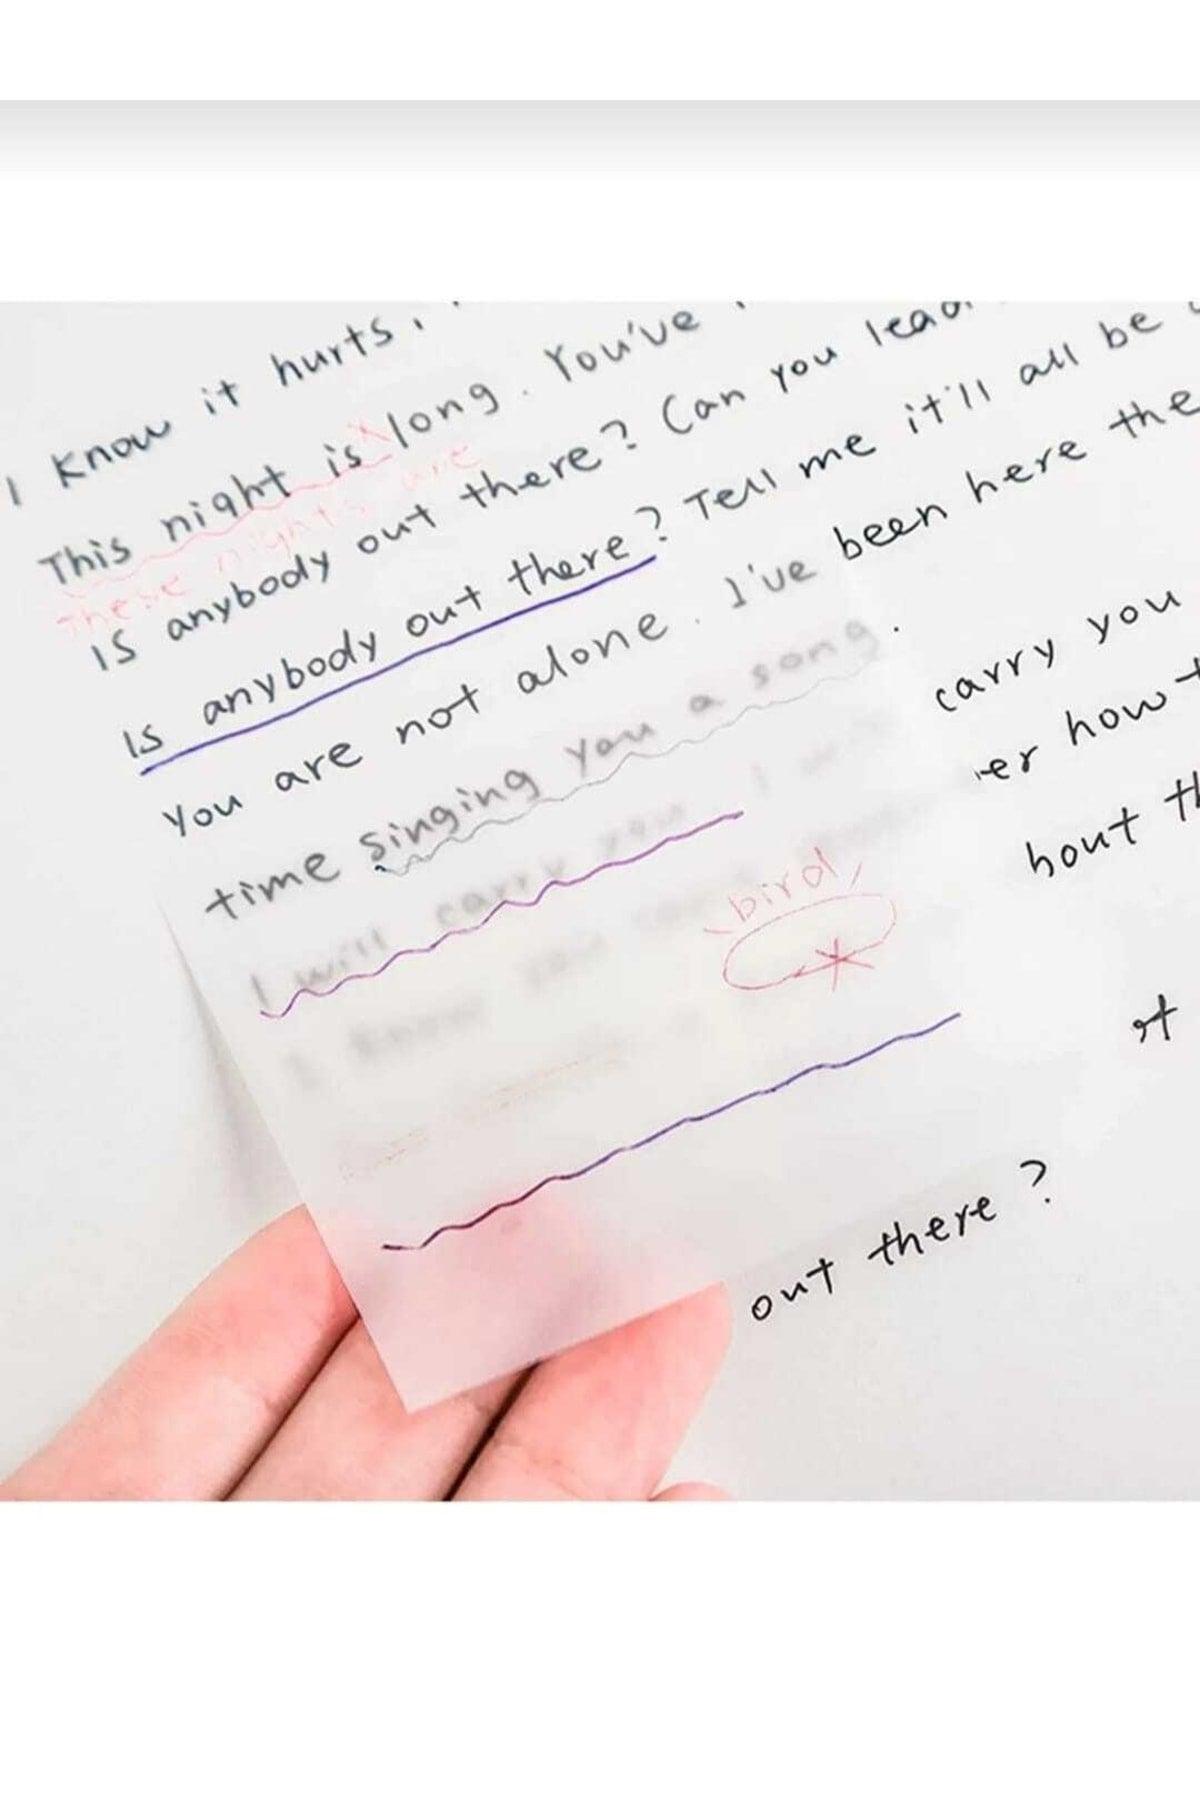 I know it hurts,
This night is long. You've
These nights are
Is anybody out there? Can you lead
Is anybody out there? Tell me it'll all be
You are not alone. I've been here the
time singing you a song.
I will carry you. I carry you
know you er how t
bird
hout th
out there?